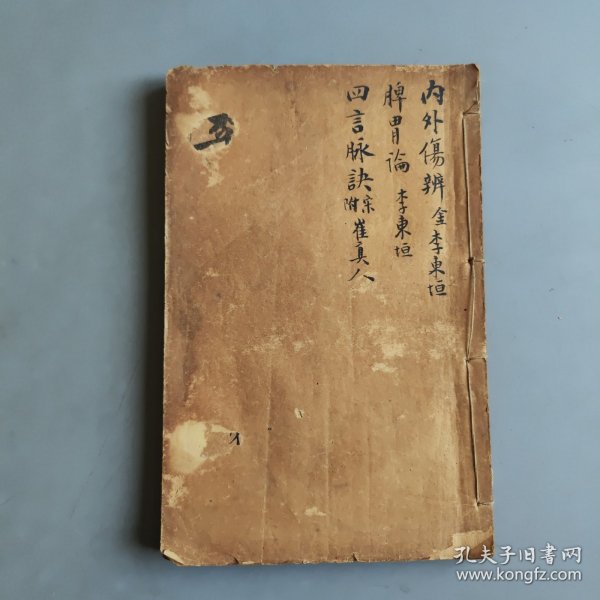 内外傷辨 金 李東垣
脾胃論 李東垣
四言脉訣 宋 崔真人
附
五
孔夫子旧书网
www.kongfz.com